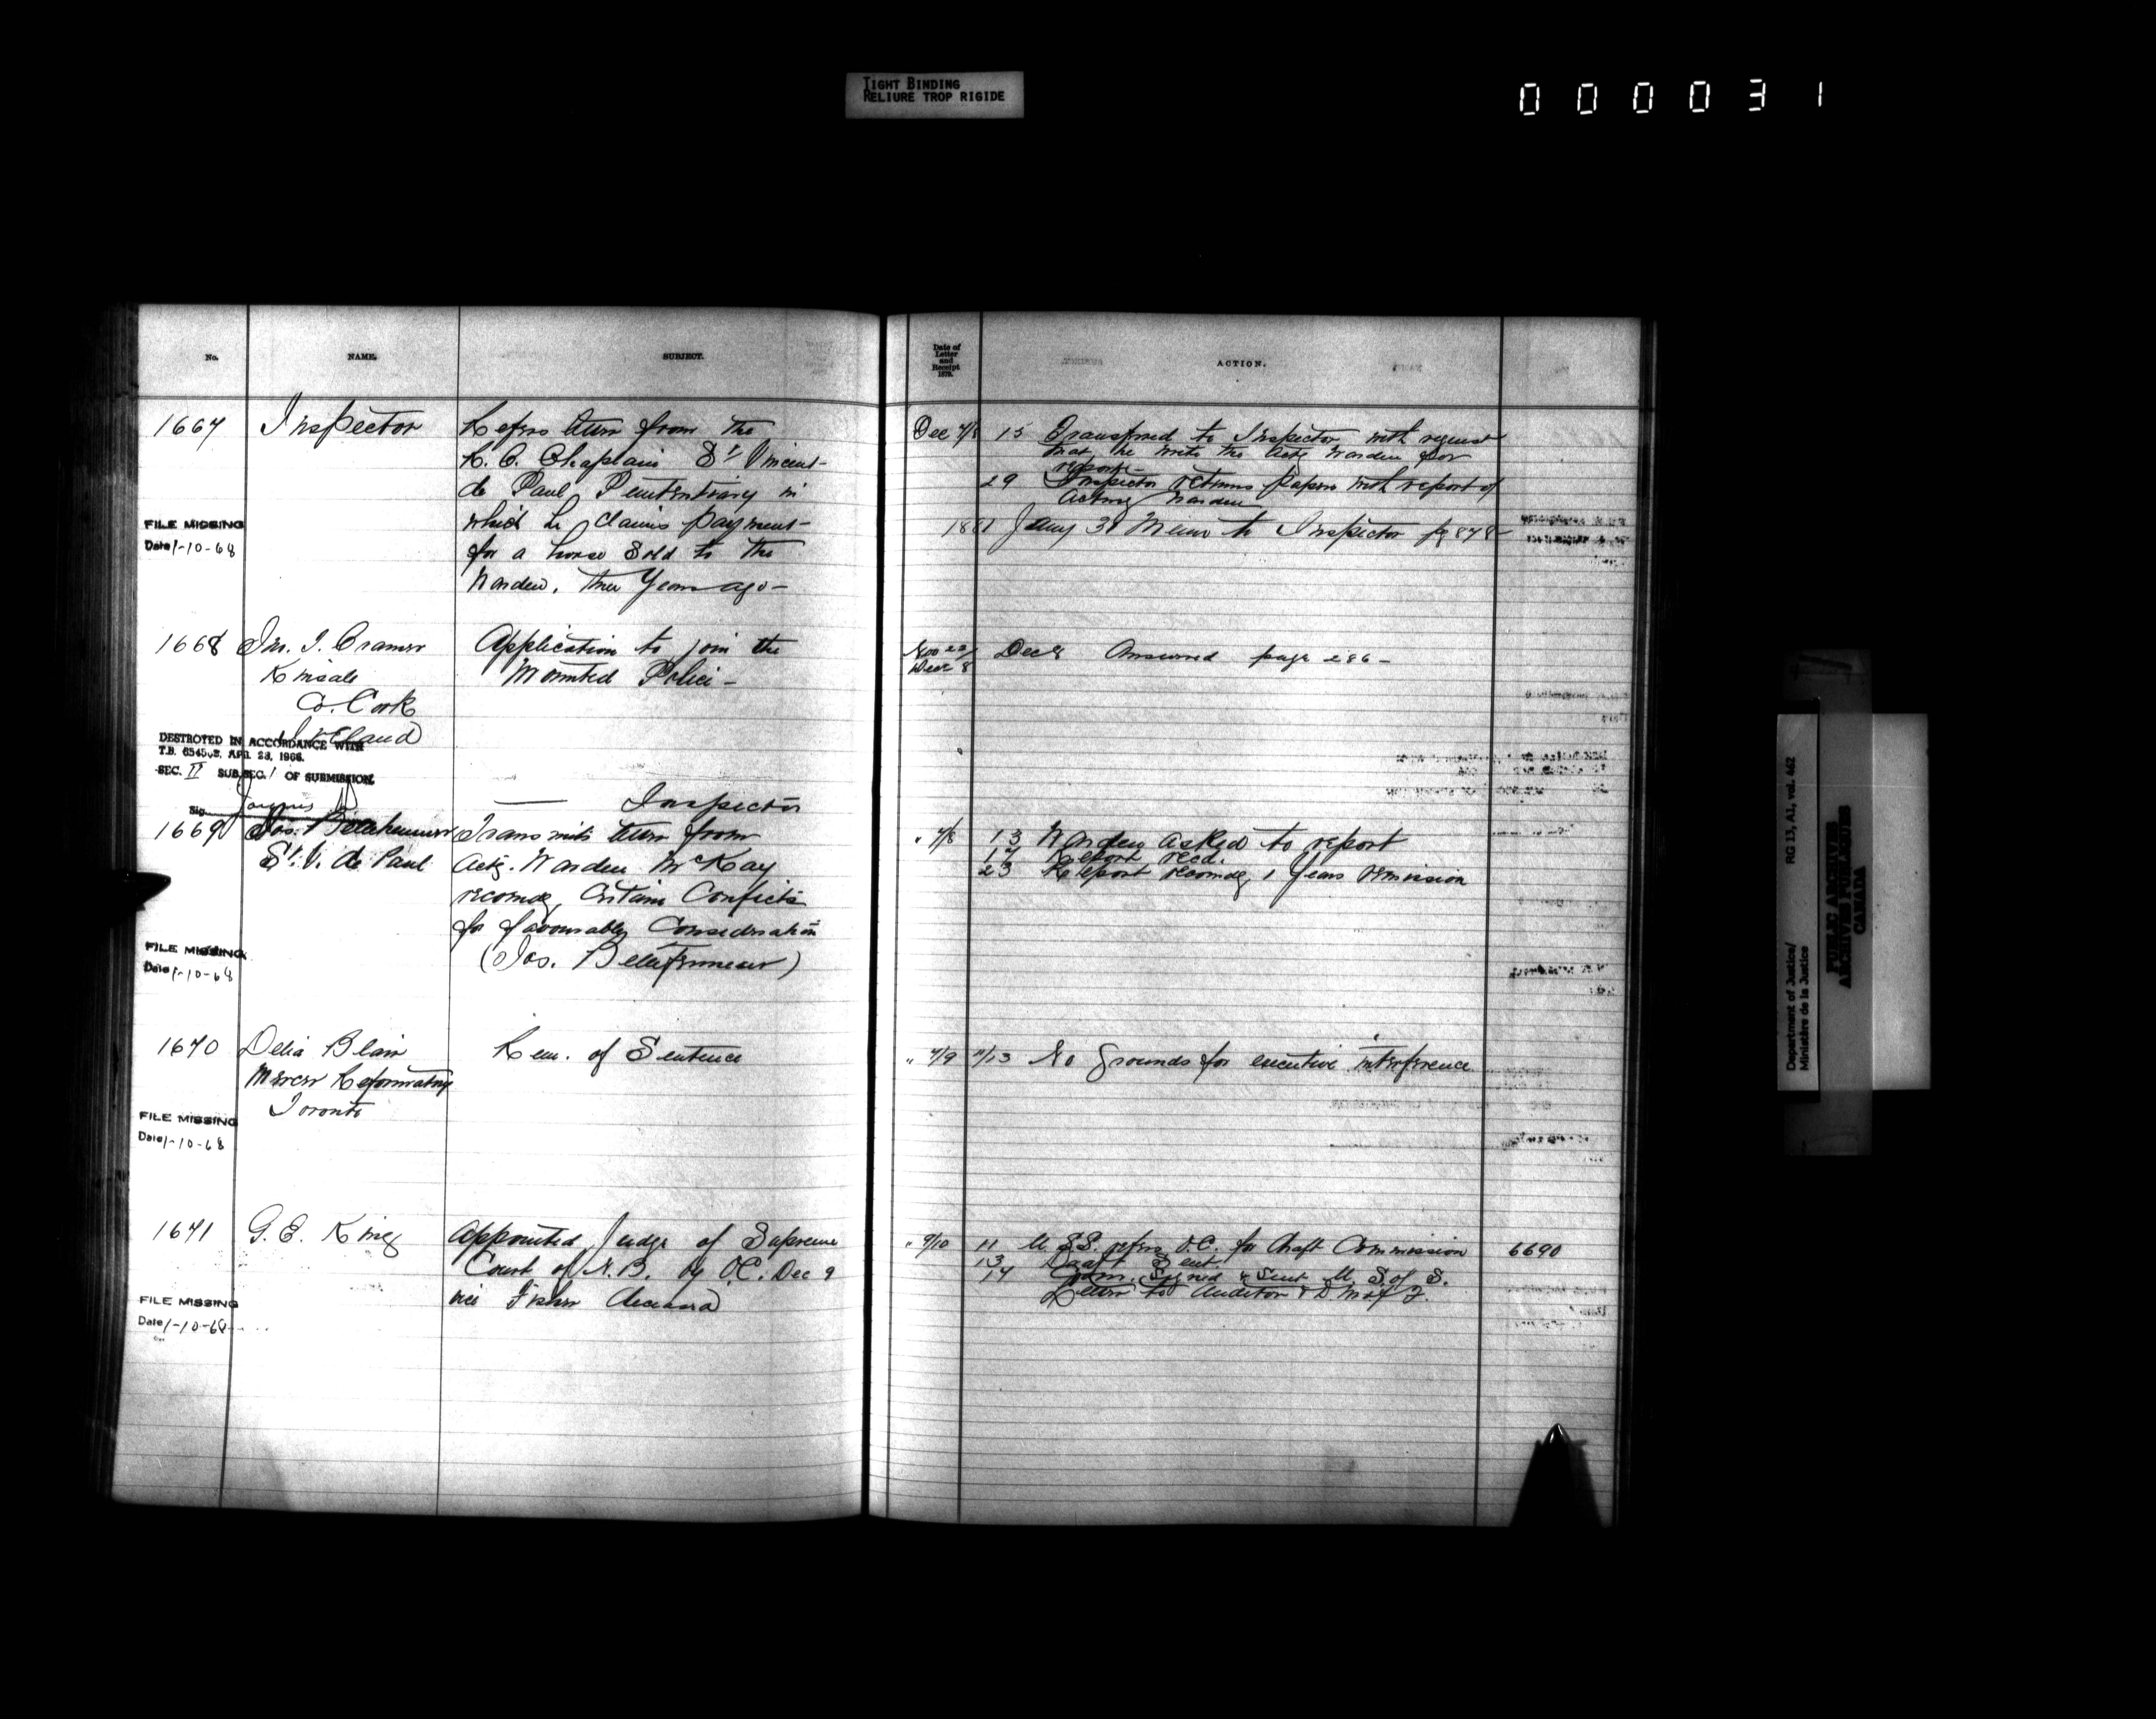 TIGHT BINDING
RELIURE TROP RIGIDE
000031
No.
NAME.
SUBJECT.
Date of
Letter
and
Receipt
1879.
ACTION.
1667
Inspector
Refers letter from the
R. C. Chaplain St Vincent
de Paul Penitentiary in
which he claims payment
for a horse sold to the
Warden, three Years ago -
FILE MISSING
Date 1-10-68
Dec 7/8
15 Transferred to Inspector with request
that he write the Actg Warden for
report -
29 Inspector returns papers with report of
Acting Warden
1881 Jany 31 Memo to Inspector pg 878
1668
Jno. I. Cramer
Kinsale
Co. Cork
Ireland
Application to join the
Mounted Police -
Nov 22/
Decr 8
Dec 8 Answered page 286 -
DESTROYED IN ACCORDANCE WITH
T.B. APR. 28, 1966.
SEC. II SUB.SEC. 1 OF SUBMISSION
Sig.
1669
Jacques
Jos.
St. V. de Paul
— Inspector
Transmits letter from
Actg. Warden McKay
recomdg certain Convicts
for favourable Consideration
(Jos.
" 7/8
13 Warden asked to report
17 Report recd.
23 Report recomdg 1 Years remission
FILE MISSING
Date 1-10-68
1670
Delia Blain
Mercer Reformatory
Toronto
Rem. of Sentence
" 7/9
"/13 No grounds for executive interference
FILE MISSING
Date 1-10-68
1671
G. E. King
Appointed Judge of Supreme
Court of N.B. by O.C. Dec 9
vice Fisher deceased
" 9/10
11 U.S.S. refers O.C. for draft Commission
13 Draft Sent.
17 Com. Signed & Sent U. S. of S.
Letter to Auditor & D. M. of F.
6690
FILE MISSING
Date 1-10-68
Department of Justice/ RG 13, A1, vol. 462
Ministère de la Justice
PUBLIC ARCHIVES
ARCHIVES PUBLIQUES
CANADA